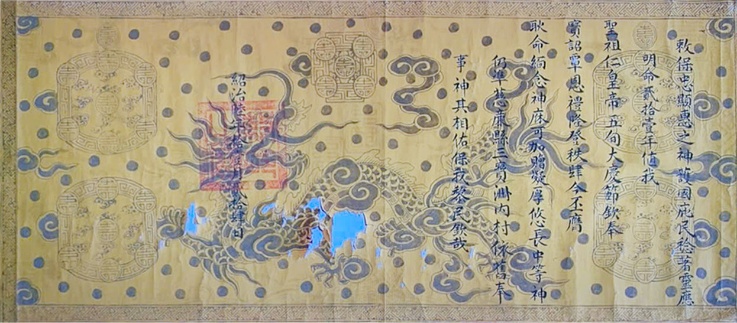 敕保忠顯惠之神護國庇民稔著靈應
明命貳拾壹年值我
聖祖仁皇帝五旬大慶節欽奉
寶詔覃恩禮隆登秩肆今丕膺
耿命緬念神庥可加贈凝厚悠長中等神
仍準慈廉縣三寶洲內村依舊奉
事神其相佑保我黎民欽哉
紹治年拾月貳拾肆日